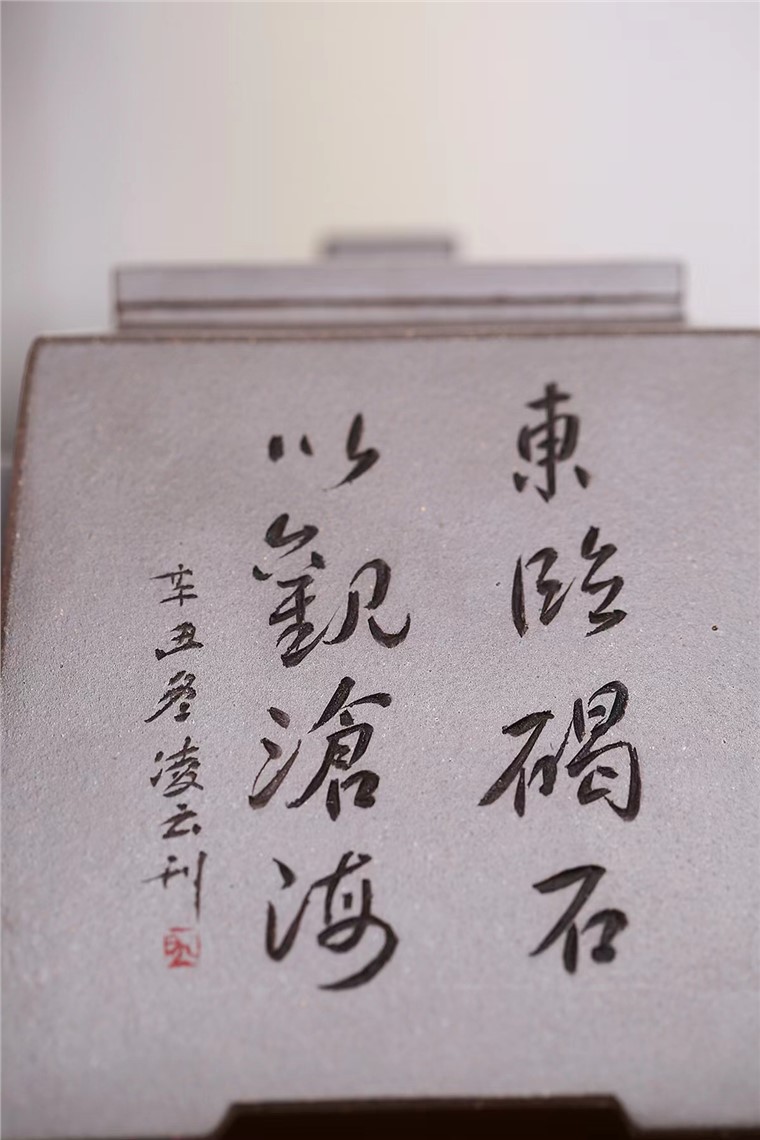 東臨碣石
以觀滄海
辛丑冬凌云刊